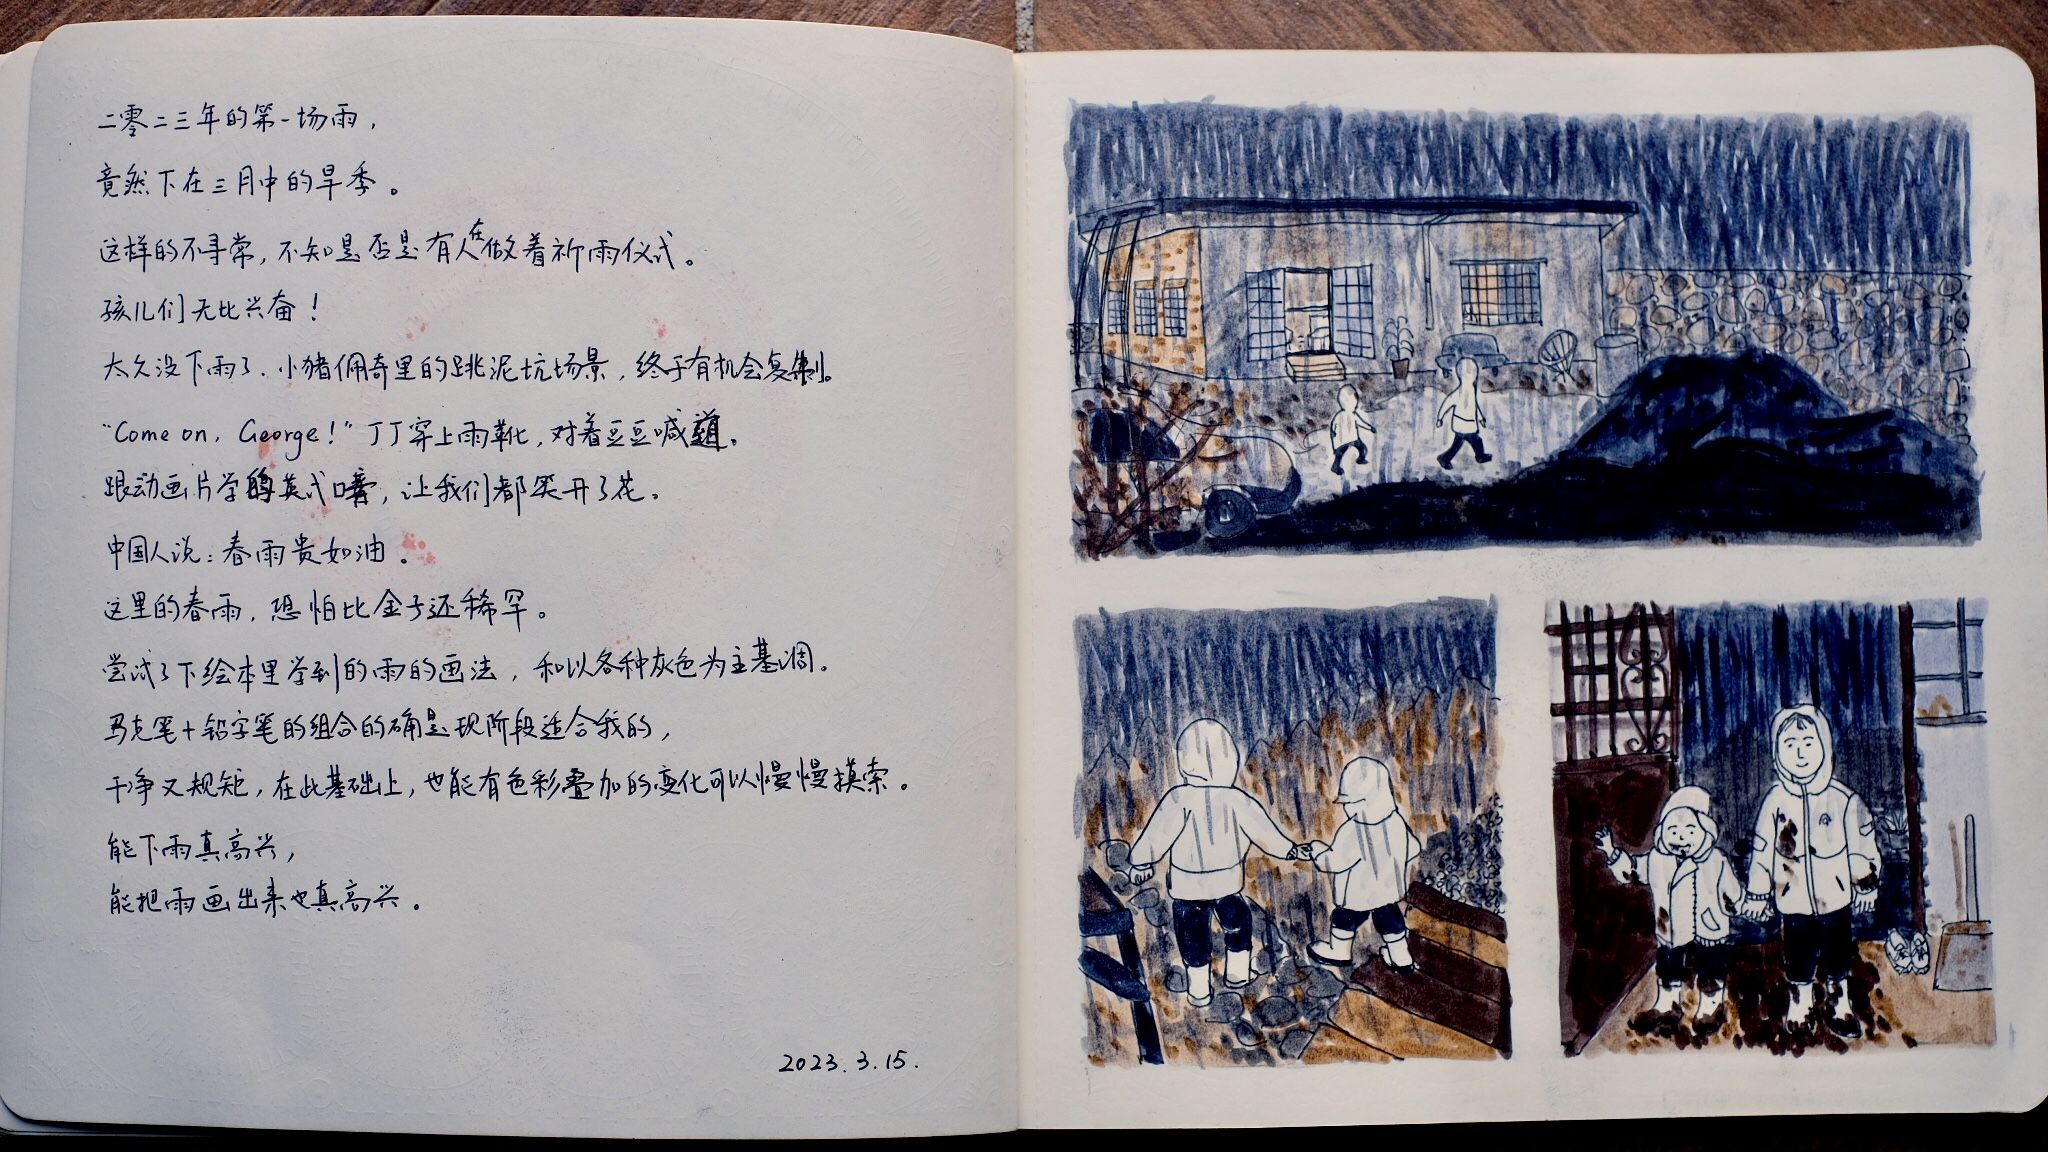 二零二三年的第一场雨，
竟然下在三月中的旱季。
这样的不寻常，不知是否是有人在做着祈雨仪式。
孩儿们无比兴奋！
太久没下雨了，小猪佩奇里的跳泥坑场景，终于有机会复制。
“Come on, George!”丁丁穿上雨靴，对着豆豆喊道。
跟动画片学的英式口音，让我们都笑开了花。
中国人说：春雨贵如油。
这里的春雨，恐怕比金子还稀罕。
尝试了下绘本里学到的雨的画法，和以各种灰色为主基调。
马克笔+铅字笔的组合的确是现阶段适合我的，
干净又规矩，在此基础上，也能有色彩叠加的变化可以慢慢摸索。
能下雨真高兴，
能把雨画出来也真高兴。
2023.3.15.